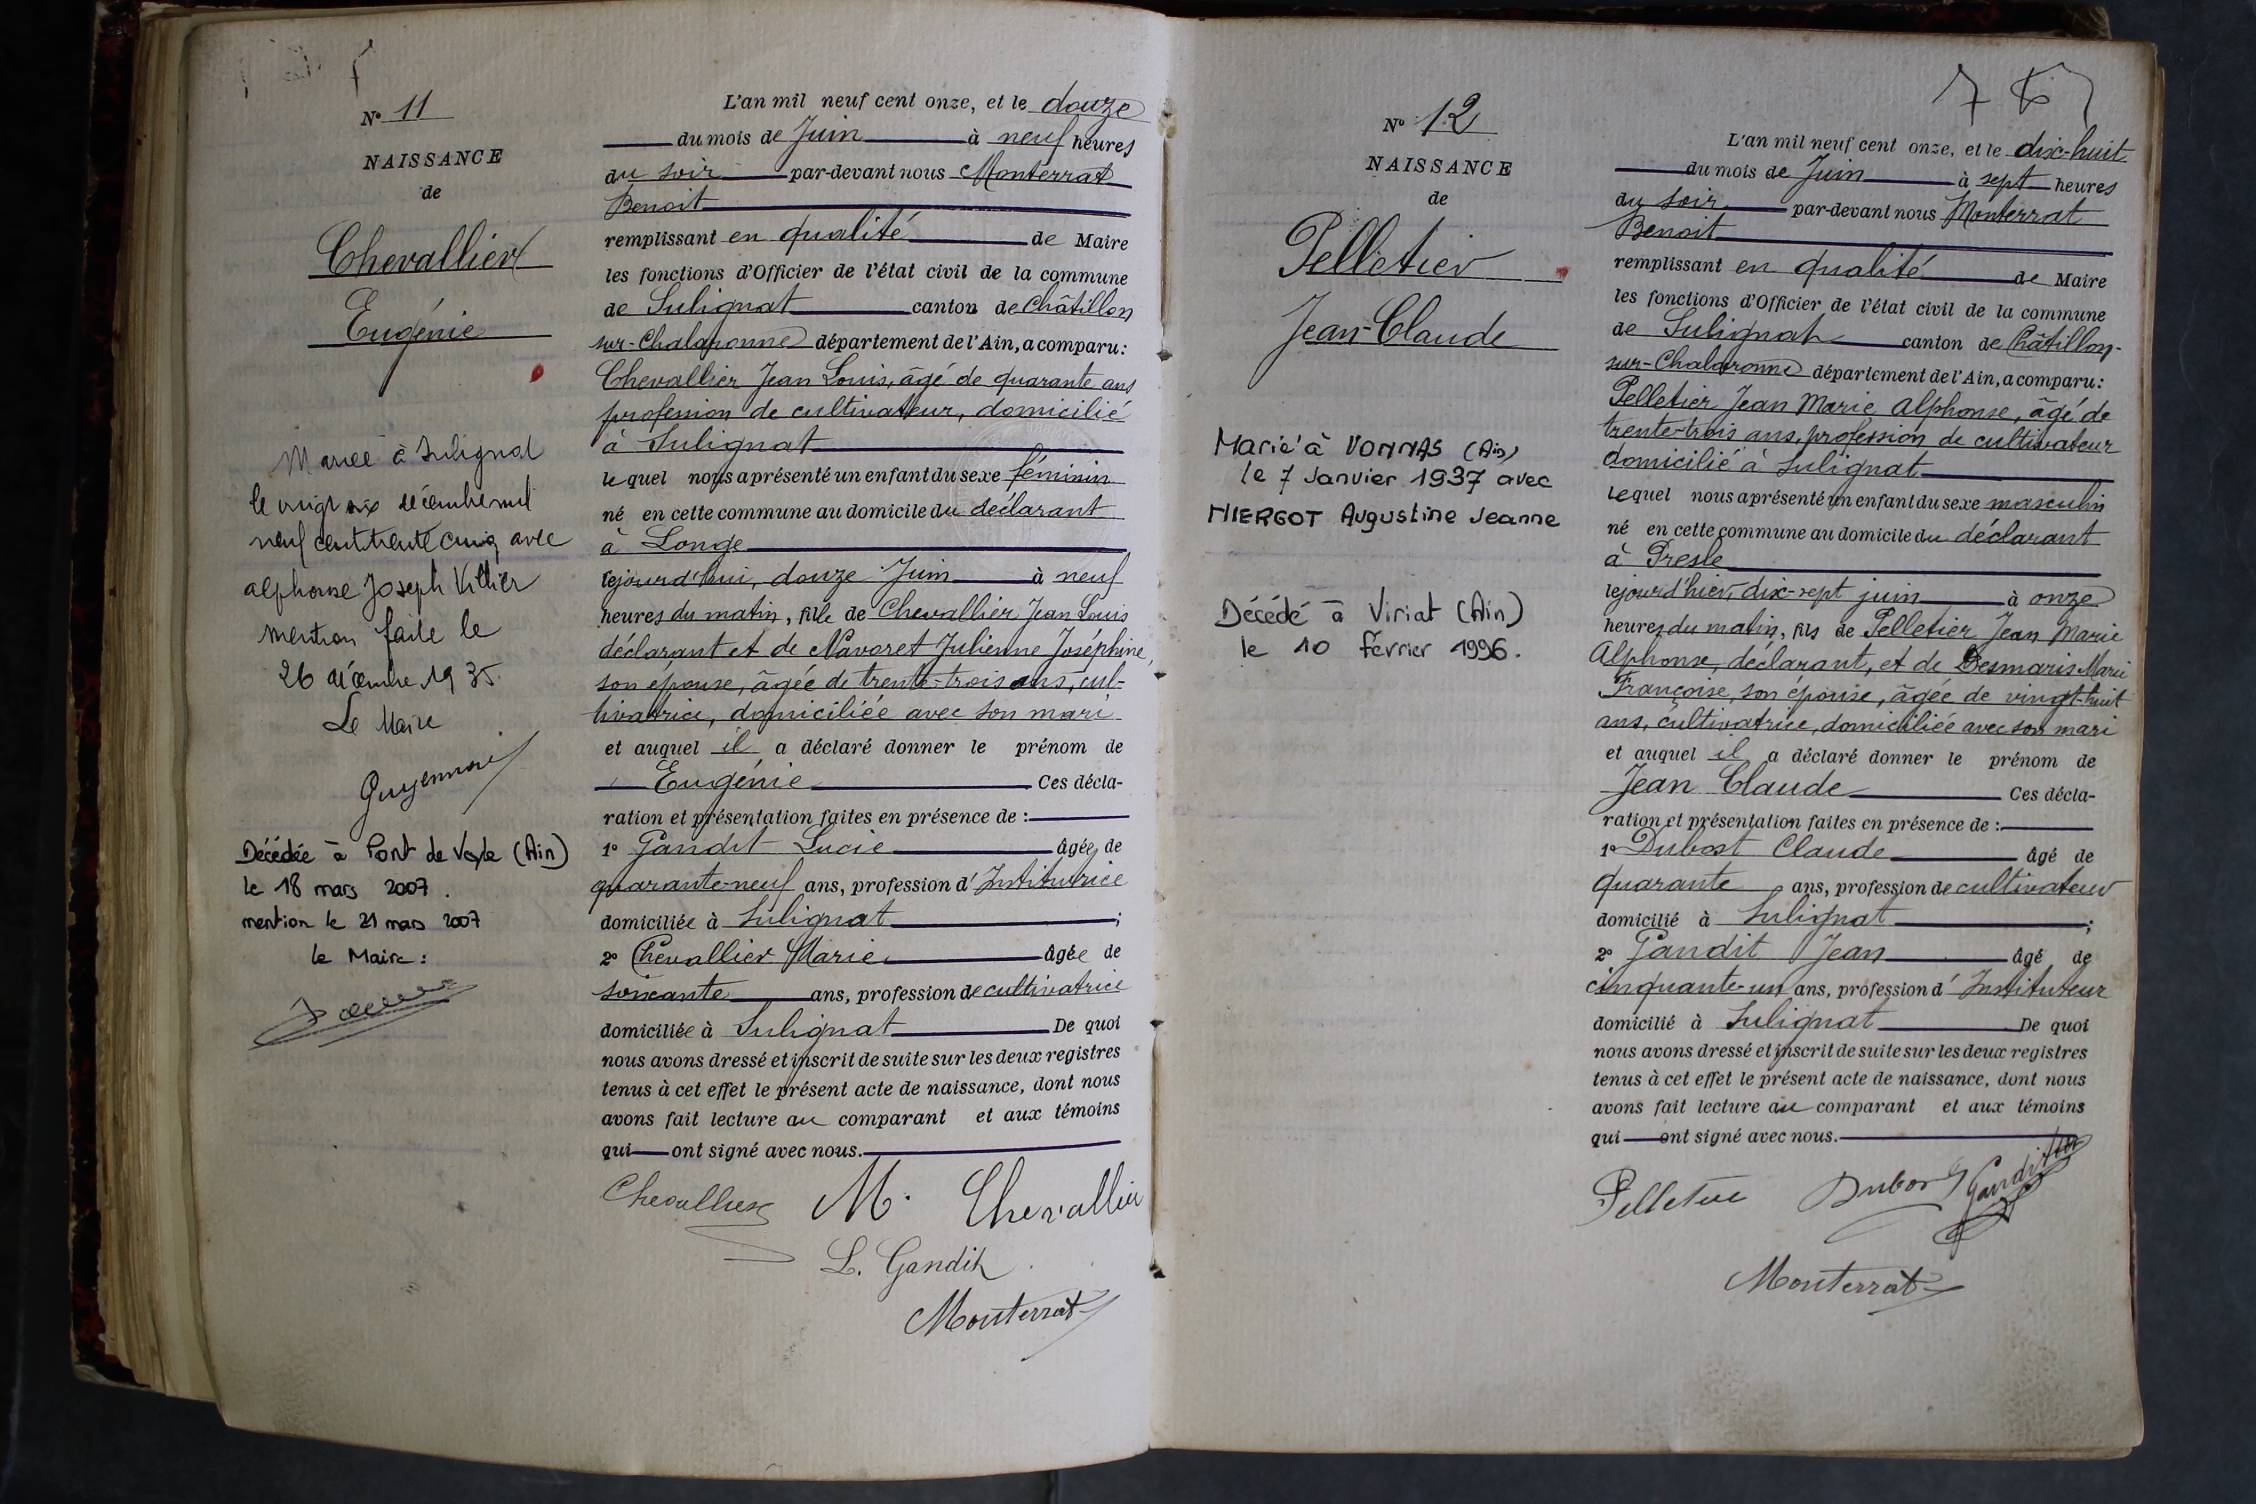 N° 11
NAISSANCE
de
Chevallier
Eugénie
Mariée à Sulignat
le vingt six décembre mil
neuf cent trente cinq avec
alphonse Joseph Villier
mention faite le
26 décembre 1935.
Le Maire
Décédée à Pont de Veyle (Ain)
le 18 mars 2007.
mention le 21 mars 2007
le Maire :
L'an mil neuf cent onze, et le douze
du mois de Juin à neuf heures
du soir par-devant nous Monterrat
Benoit
remplissant en qualité de Maire
les fonctions d'Officier de l'état civil de la commune
de Sulignat canton de Châtillon
sur-Chalaronne département de l'Ain, a comparu :
Chevallier Jean Louis, âgé de quarante ans
profession de cultivateur, domicilié
à Sulignat
lequel nous a présenté un enfant du sexe féminin
né en cette commune au domicile du déclarant
à Longe
lejourd'hui, douze Juin à neuf
heures du matin, fille de Chevallier Jean Louis
déclarant et de Navoret Julienne Joséphine,
son épouse, âgée de trente-trois ans, cul-
tivatrice, domiciliée avec son mari
et auquel il a déclaré donner le prénom de
Eugénie Ces décla-
ration et présentation faites en présence de :
1° Gandit Lucie âgée de
quarante-neuf ans, profession d'Institutrice
domiciliée à Sulignat ;
2° Chevallier Marie âgée de
soixante ans, profession de cultivatrice
domiciliée à Sulignat De quoi
nous avons dressé et inscrit de suite sur les deux registres
tenus à cet effet le présent acte de naissance, dont nous
avons fait lecture au comparant et aux témoins
qui ont signé avec nous.
Chevallier M. Chevallier
L. Gandit
Monterrat
N° 12
NAISSANCE
de
Pelletier
Jean-Claude
Marié à VONNAS (Ain)
le 7 Janvier 1937 avec
NIERGOT Augustine Jeanne
Décédé à Viriat (Ain)
le 10 février 1996.
L'an mil neuf cent onze, et le dix-huit
du mois de Juin à sept heures
du soir par-devant nous Monterrat
Benoit
remplissant en qualité de Maire
les fonctions d'Officier de l'état civil de la commune
de Sulignat canton de Châtillon-
sur-Chalaronne département de l'Ain, a comparu :
Pelletier Jean Marie Alphonse, âgé de
trente-trois ans, profession de cultivateur
domicilié à Sulignat
lequel nous a présenté un enfant du sexe masculin
né en cette commune au domicile du déclarant
à Presle
lejourd'hier, dix-sept juin à onze
heures du matin, fils de Pelletier Jean Marie
Alphonse, déclarant, et de Desmaris Marie
Françoise, son épouse, âgée de vingt-huit
ans, cultivatrice, domiciliée avec son mari
et auquel il a déclaré donner le prénom de
Jean Claude Ces décla-
ration et présentation faites en présence de :
1° Dubost Claude âgé de
quarante ans, profession de cultivateur
domicilié à Sulignat ;
2° Gandit Jean âgé de
cinquante-un ans, profession d'Instituteur
domicilié à Sulignat De quoi
nous avons dressé et inscrit de suite sur les deux registres
tenus à cet effet le présent acte de naissance, dont nous
avons fait lecture au comparant et aux témoins
qui ont signé avec nous.
Pelletier Dubost Gandit
Monterrat